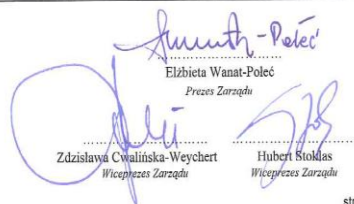 Elżbieta Wanat-Połeć
Prezes Zarządu
Zdzisława Cwalińska-Weychert
Wiceprezes Zarządu
Hubert Stokłas
Wiceprezes Zarządu